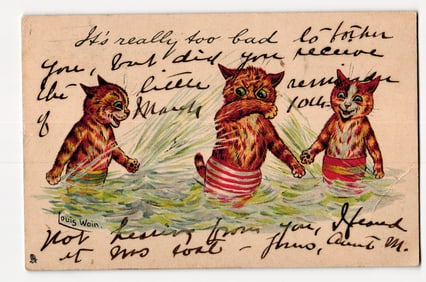 It's really too bad to bother
you, but did you receive
the little reminder
of March 10th
Louis Wain.
not hearing from you, I feared
it was lost – Yours, Aunt M.